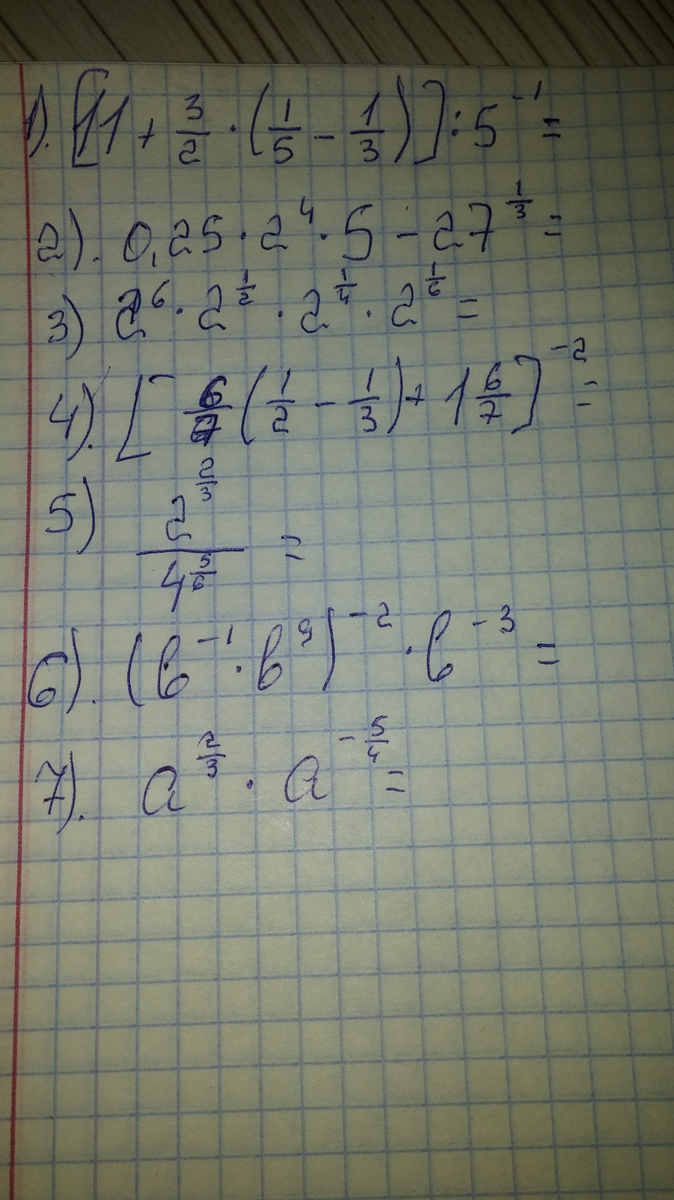 1). [11 + 3/2 · (1/5 - 1/3)] : 5^-1 =
2). 0,25 · 2^4 · 5 - 27^1/3 =
3) 2^6 · 2^1/2 · 2^1/4 · 2^1/6 =
4). [6/7 (1/2 - 1/3) + 1 6/7]^-2 =
5) 2^2/3 / 4^5/6 =
6). (b^-1 · b^9)^-2 · b^-3 =
7). a^2/3 · a^-5/4 =